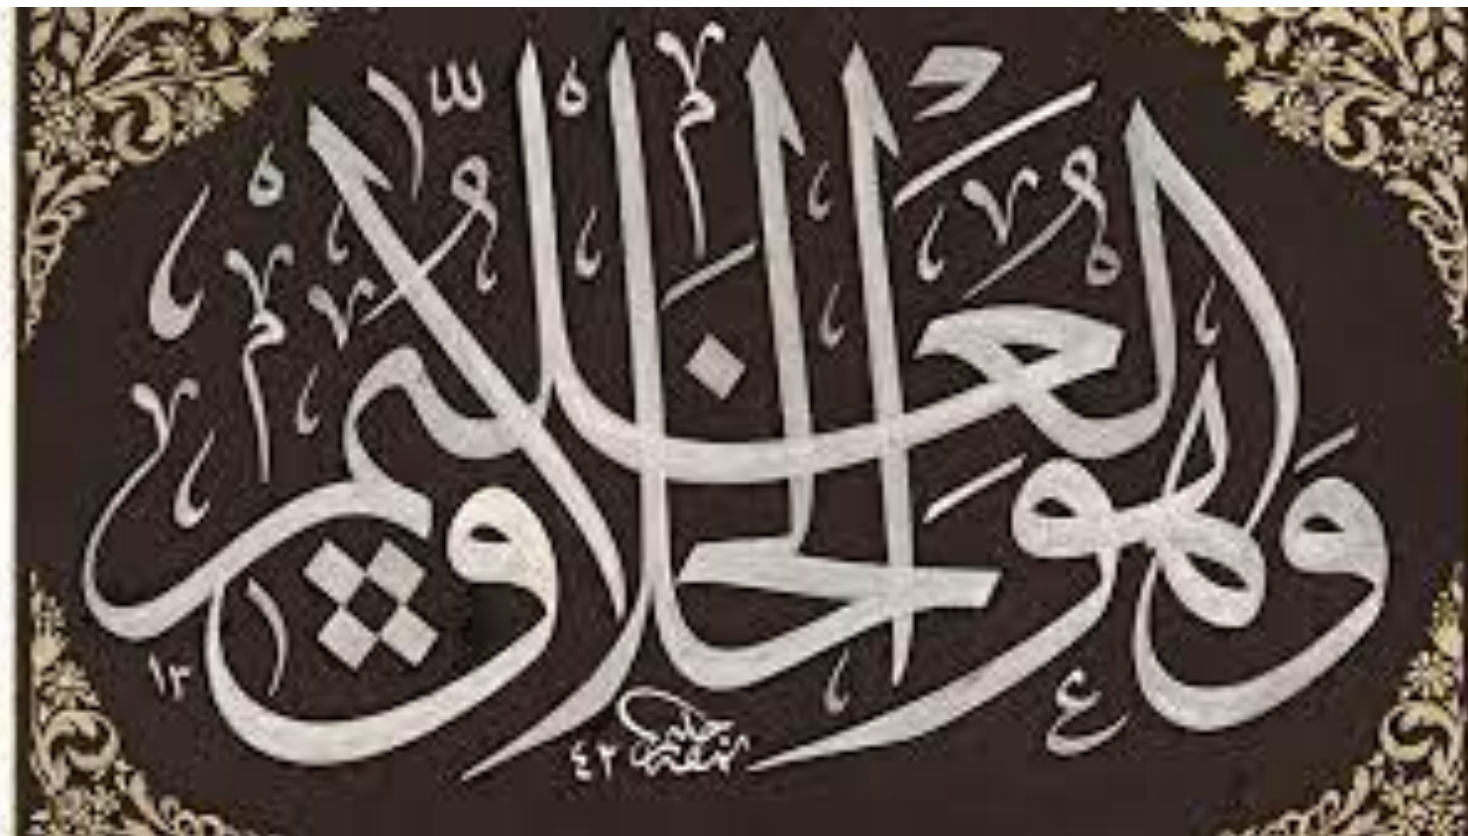 وَهُوَ الْخَلَّاقُ الْعَلِيمُ
١٣ ٤٢